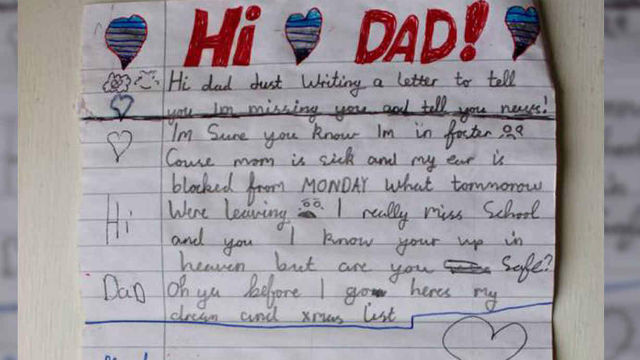 Hi DAD!
Hi dad Just Writing a letter to tell
you Im missing you and tell you news!
Im Sure you know Im in foster
Couse mom is sick and my ear is
blocked from MONDAY What tommorow
Were leaving I really miss School
Hi
and you I know your up in
heaven but are you Safe?
Dad
Oh ya before I go heres my
dream and xmas list